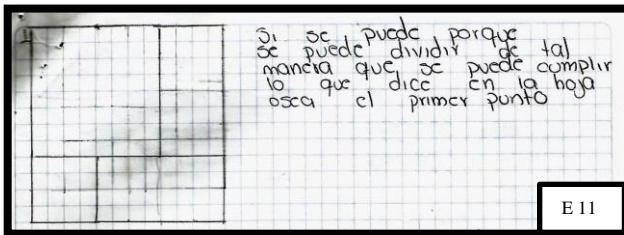 Si se puede porque
se puede dividir de tal
manera que se puede cumplir
lo que dice en la hoja
osea el primer punto
E 11